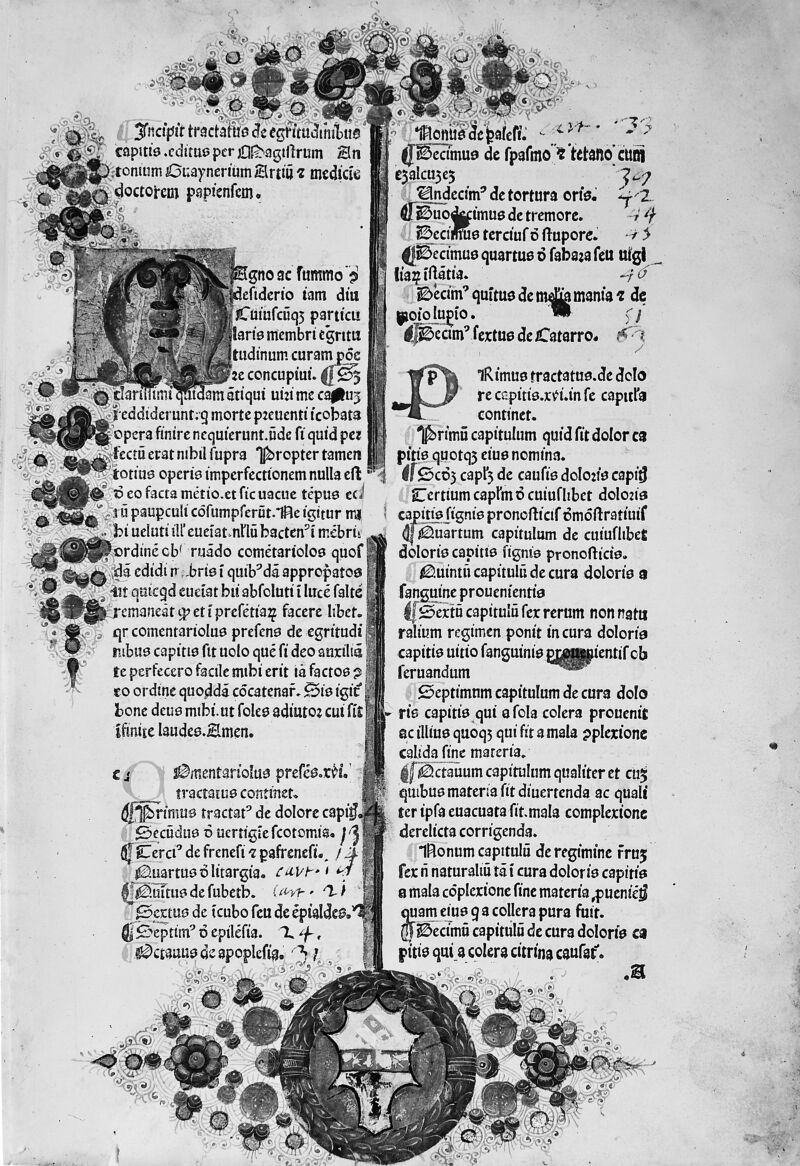 Incipit tractatus de egritudinibus
capitis .editus per Magistrum An
tonium Guaynerium Artiū ⁊ medicīe
doctorem papiensem.
MAgno ac summo ꝓ
desiderio iam diu
Cuiuscūqꝫ particu
laris membri egritu
tudinum curam pōe
re concupiui. ¶ Sꝫ
clarissimi quidam ātiqui uiri me
reddiderunt:q morte preuenti īcohata
opera finire nequierunt.ūde si quid per
fectū erat nihil supra Propter tamen
totius operis imperfectionem nulla est
ō eo facta mētio.et sic uacue tēpus
pauꝑculi cōsumpserūt.Ne igitur mi
hi ueluti illꝰ eueīat.nłlū hactenꝰ ī mēbrī
ordinē ruādo comētariolos quos
dā edidi bris ī quibꝰdā appropatos
ut quicqd eueīat hii absoluti ī lucē saltē
remaneāt qꝫ et ī presētiaꝝ facere libet.
qr comentariolus presens de egritudi
nibus capitis sit uolo quē si deo auxiliā
te perfecero facile mihi erit iā factos ꝓ
ro ordine quoddā cōcatenar̄. Sis igit̄
bone deus mihi.ut soles adiutor cui sīt
īfinite laudes.Amen.
c COmentariolus presēs.xvi.
tractatus continet.
¶ Primus tractatꝰ de dolore capitꝭ. 4
Secūdus ō uertigīe scotomia. 13
¶ Terciꝰ de frenesi ⁊ pafrenesi. 14
Quartus ō litargia. cart. 19
¶ Quītus de subeth. cart. 21
Sextus de īcubo seu de ēpialdes.
¶ Septimꝰ ō epilēsia. 24.
Octauus de apoplesia. 31
Nonus de palesi. cart. 33
¶ Decimus de spasmo ⁊ tetano cum
eꝫalcuꝫeꝫ 39
Undecimꝰ de tortura oris. 42
¶ Duodecimus de tremore. 44
Decimus tercius ō stupore. 45
¶ Decimus quartus ō sahara seu uigi
liaꝝ īstātia. 46
Decimꝰ quītus de melīa mania ⁊ de
moīo lupīo. 51
¶ Decimꝰ sextus de Catarro. 63
p PRimus tractatus.de dolo
re capitis.xvi.in se capitła
continet.
Primū capitulum quid sit dolor ca
pitis quotqꝫ eius nomina.
¶ Scdꝫ caplꝫ de causis doloris capitꝭ
Tertium capłm ō cuiuslibet doloris
capitis signis pronosticis ōmōstratiuis
¶ Quartum capitulum de cuiuslibet
doloris capitis signis pronosticis.
Quintū capitulū de cura doloris a
sanguine prouenientis
¶ Sextū capitulū sex rerum non natu
ralium regimen ponit in cura doloris
capitis uitio sanguinis prouenientis ob
seruandum
Septimnm capitulum de cura dolo
ris capitis qui a sola colera prouenit
ac illius quoqꝫ qui fit a mala ꝯplexione
calida sine materia.
¶ Octauum capitulum qualiter et cuꝫ
quibus materia sit diuertenda ac quali
ter ipsa euacuata sit.mala complexione
derelicta corrigenda.
Nonum capitulū de regimine r̄ruꝫ
sex n̄ naturaliū tā ī cura doloris capitis
a mala cōplexione sine materia ꝓueniētꝭ
quam eius q a collera pura fuit.
¶ Decimū capitulū de cura doloris ca
pitis qui a colera citrina causat̄.
.A